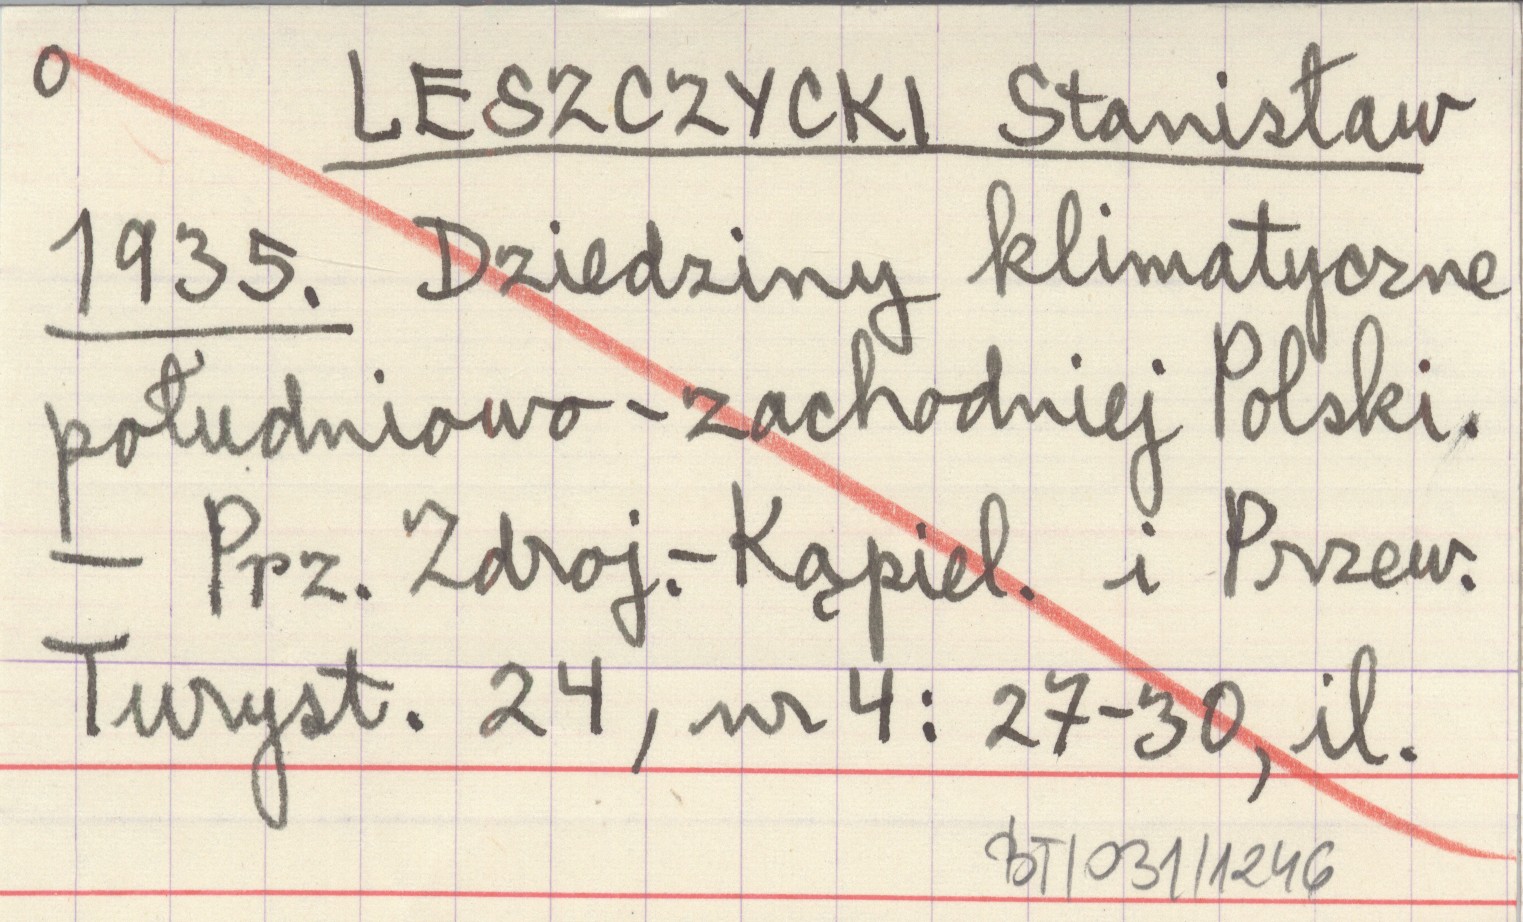 0 LESZCZYCKI Stanisław
1935. Dziedziny klimatyczne
południowo-zachodniej Polski.
— Prz. Zdroj.-Kąpiel. i Przew.
Turyst. 24, nr 4: 27-30, il.
BT/031/1246